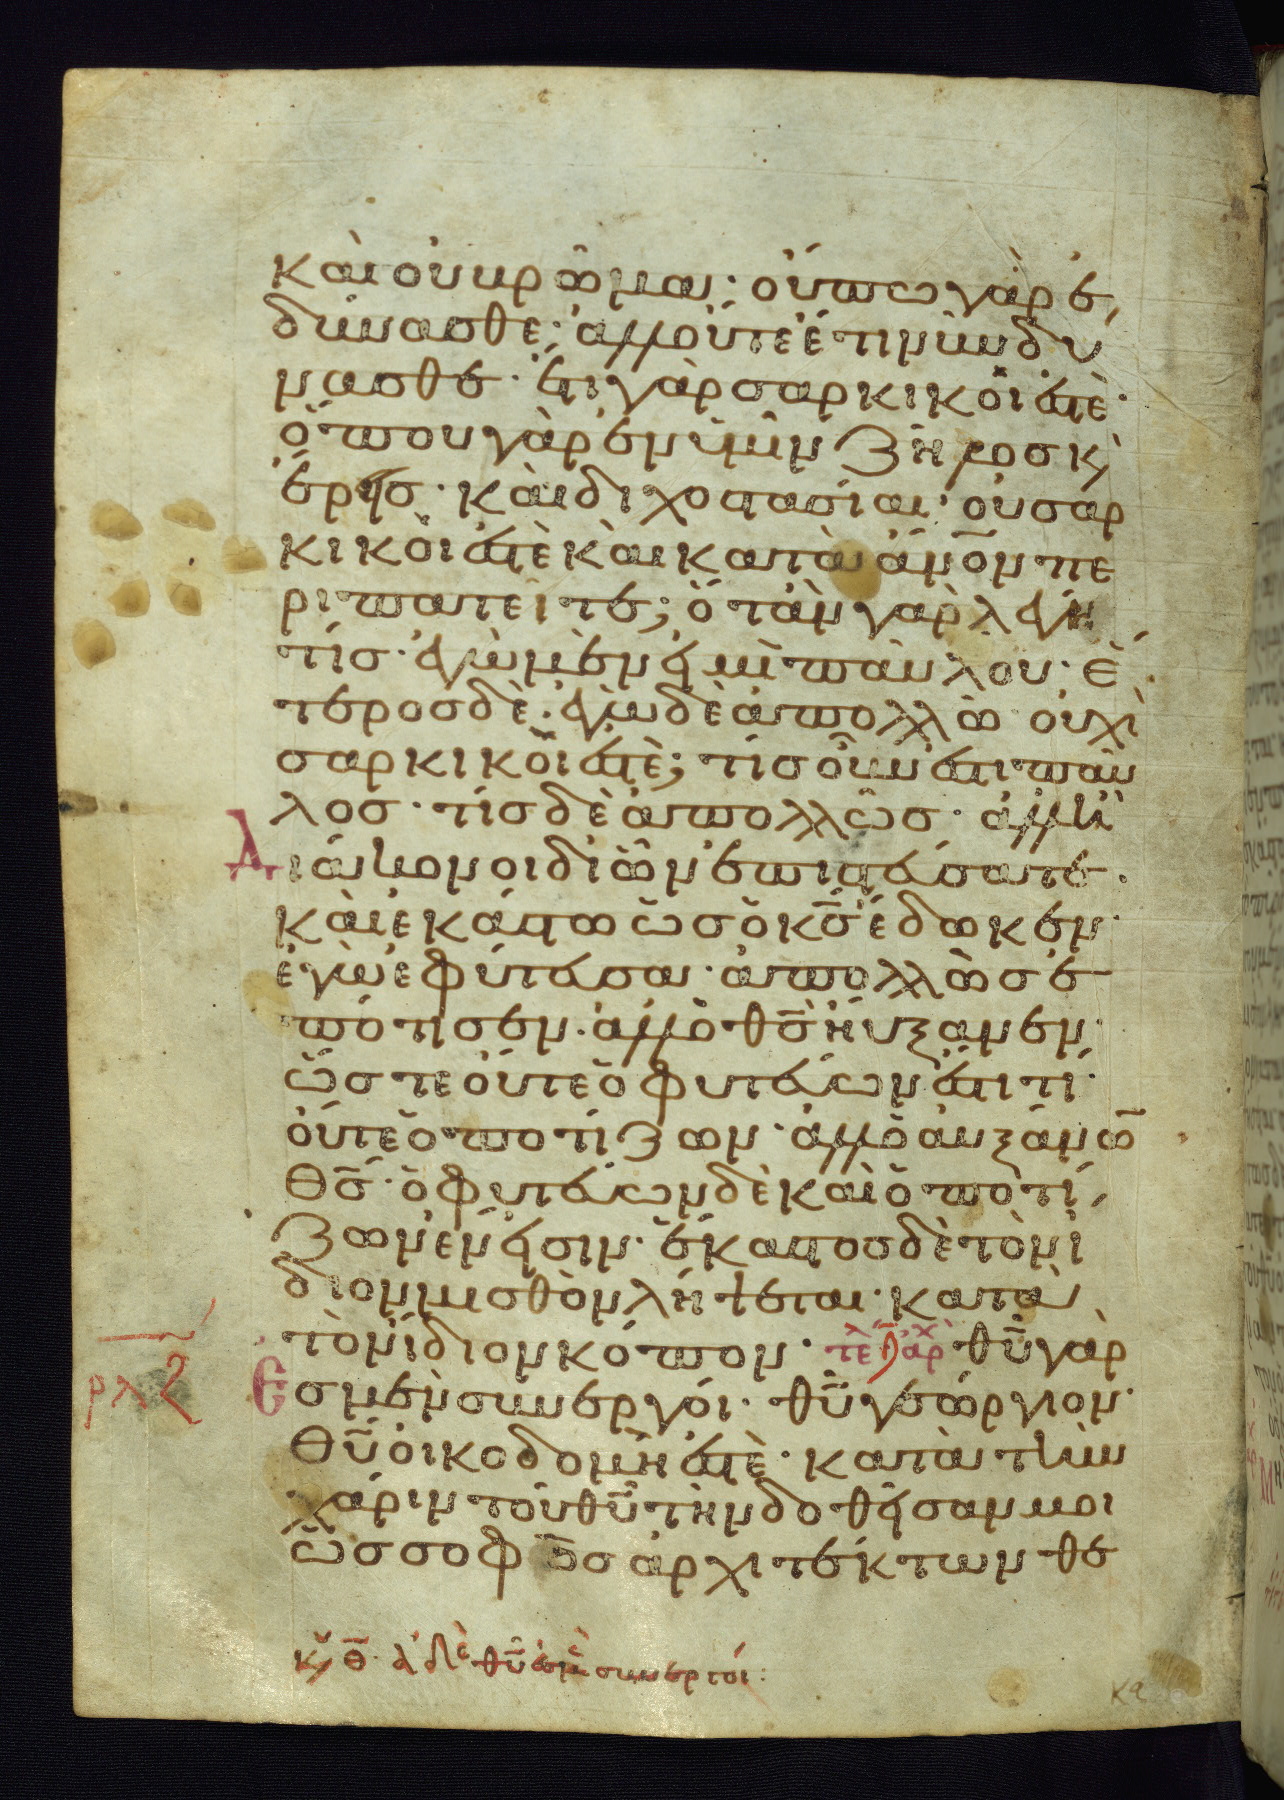 καὶ οὐ βρῶμα· οὔπω γὰρ ἐ
δύνασθε· ἀλλ' οὔτε ἔτι νῦν δύ
νασθε· ἔτι γὰρ σαρκικοί ἐστὲ·
ὅπου γὰρ ἐν ὑμῖν ζῆλος κ(αὶ)
ἔρις· καὶ διχοστασίαι· οὐ σαρ
κικοί ἐστὲ καὶ κατὰ ἄνον πε
ριπατεῖτε; ὅταν γὰρ λέγη
τίς· ἐγὼ μέν εἰμι παύλου· ἕ
τερος δὲ· ἐγὼ δὲ ἀπολλὼ οὐχὶ
σαρκικοί ἐστὲ; τίς οὖν ἐστι παῦ
λος· τίς δὲ ἀπολλῶς· ἀλλ' ἢ
Διάκονοι δι' ὧν ἐπιστεύσατε·
καὶ ἑκάστω ὡς ὁ κς ἔδωκεν·
ἐγὼ ἐφύτευσα· ἀπολλὼς ἐ
πότισεν· ἀλλ' ὁ θς ηὔξανεν·
ὥστε οὔτε ὁ φυτεύων ἐστι τί·
οὔτε ὁ ποτίζων· ἀλλ' ὁ αὐξάνω
θς· ὁ φυτεύων δὲ καὶ ὁ ποτί
ζων ἕν εἰσιν· ἕκαστος δὲ τὸν ἴ
διον μισθὸν λήψεται· κατὰ
τὸν ἴδιον κόπον· τε αρχ θυ γὰρ
ρλζ Ἐσμεν συνεργοί· θυ γεώργιον·
θυ οἰκοδομή ἐστὲ· κατὰ τὴν
χάριν τοῦ θυ τὴν δοθεῖσαν μοι
ὡς σοφὸς ἀρχιτέκτων θε
κυ θ· ἀδε θυ ἐσμὲ συνεργοί:
κα